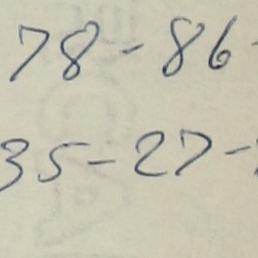 78-86-
35-27-